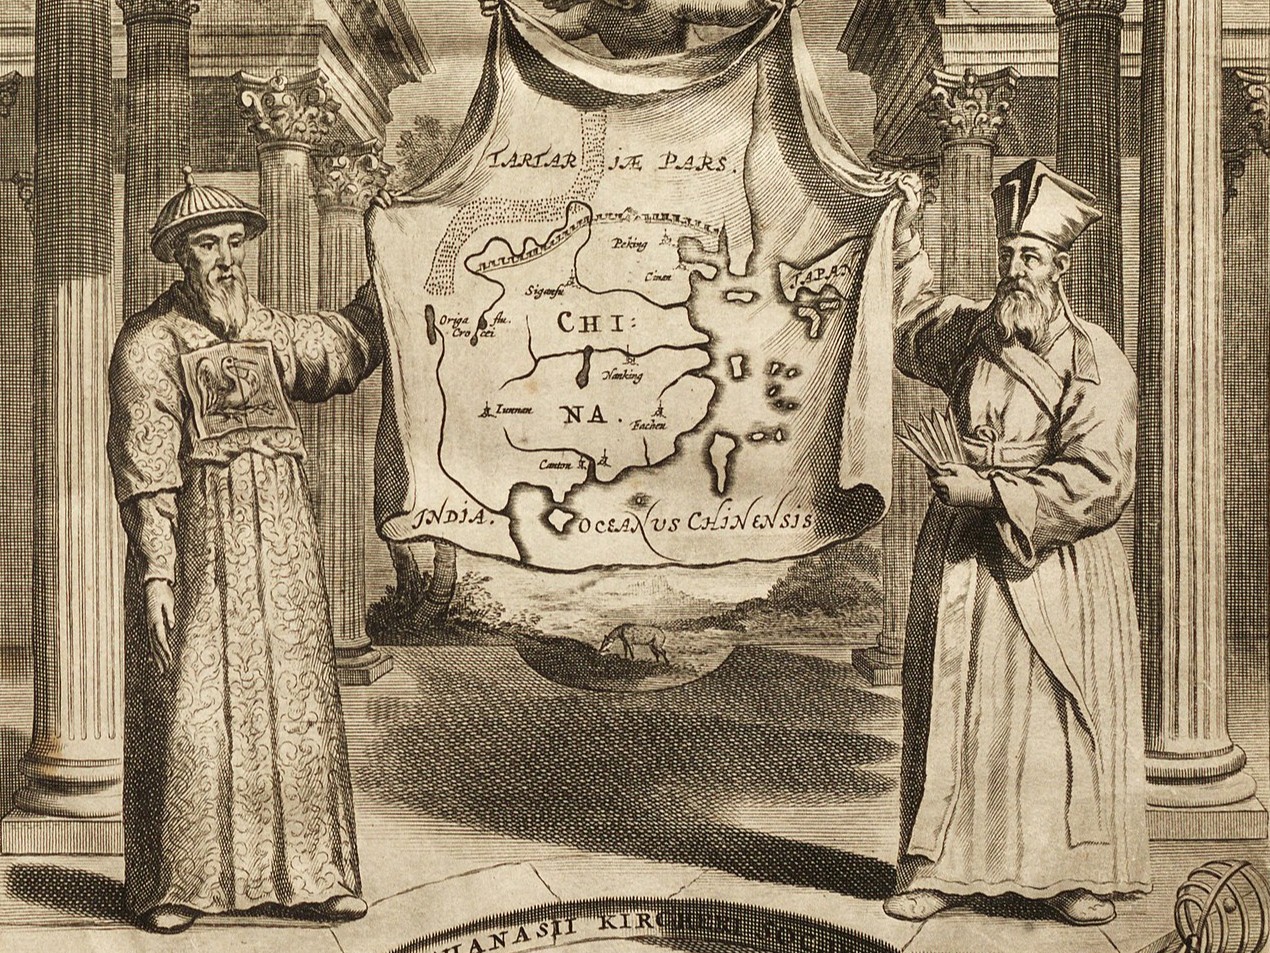 TARTAR IÆ PARS.
Peking
IAPAN
Cinan
Siganfu
Origa flu.
Cro cei
CHI:
Nanking
Iunnan
NA.
Fochen
Canton
INDIA.
OCEANUS CHINENSIS
HANASII KIRCHERI